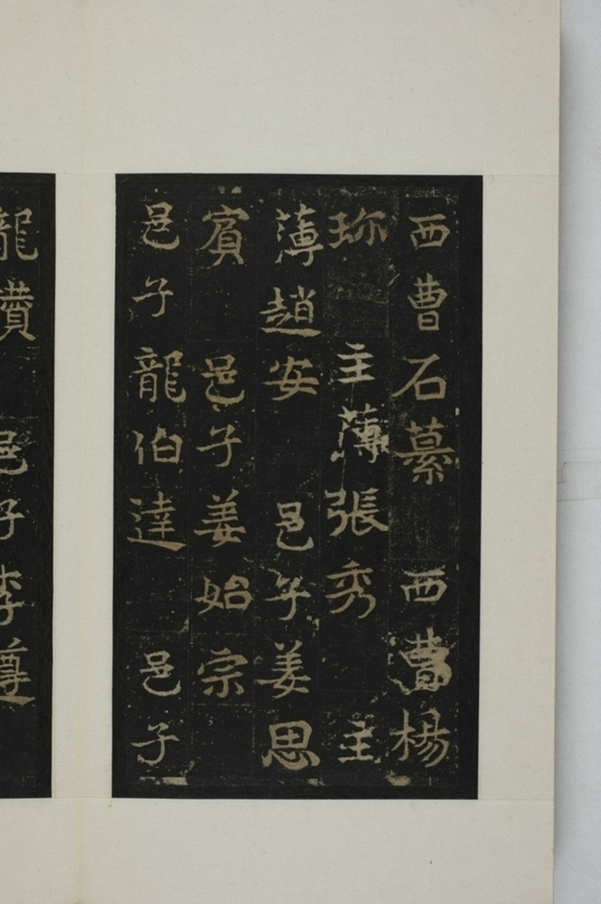 西曹石綦 西曹楊
珎 主薄張秀 主
薄趙安 邑子姜思
賓 邑子姜始宗
邑子龍伯達 邑子
龍瓚 邑子李尊